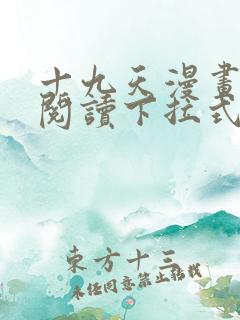 十九天漫畫
閱讀下拉式
東方十三
未经同意禁止转载